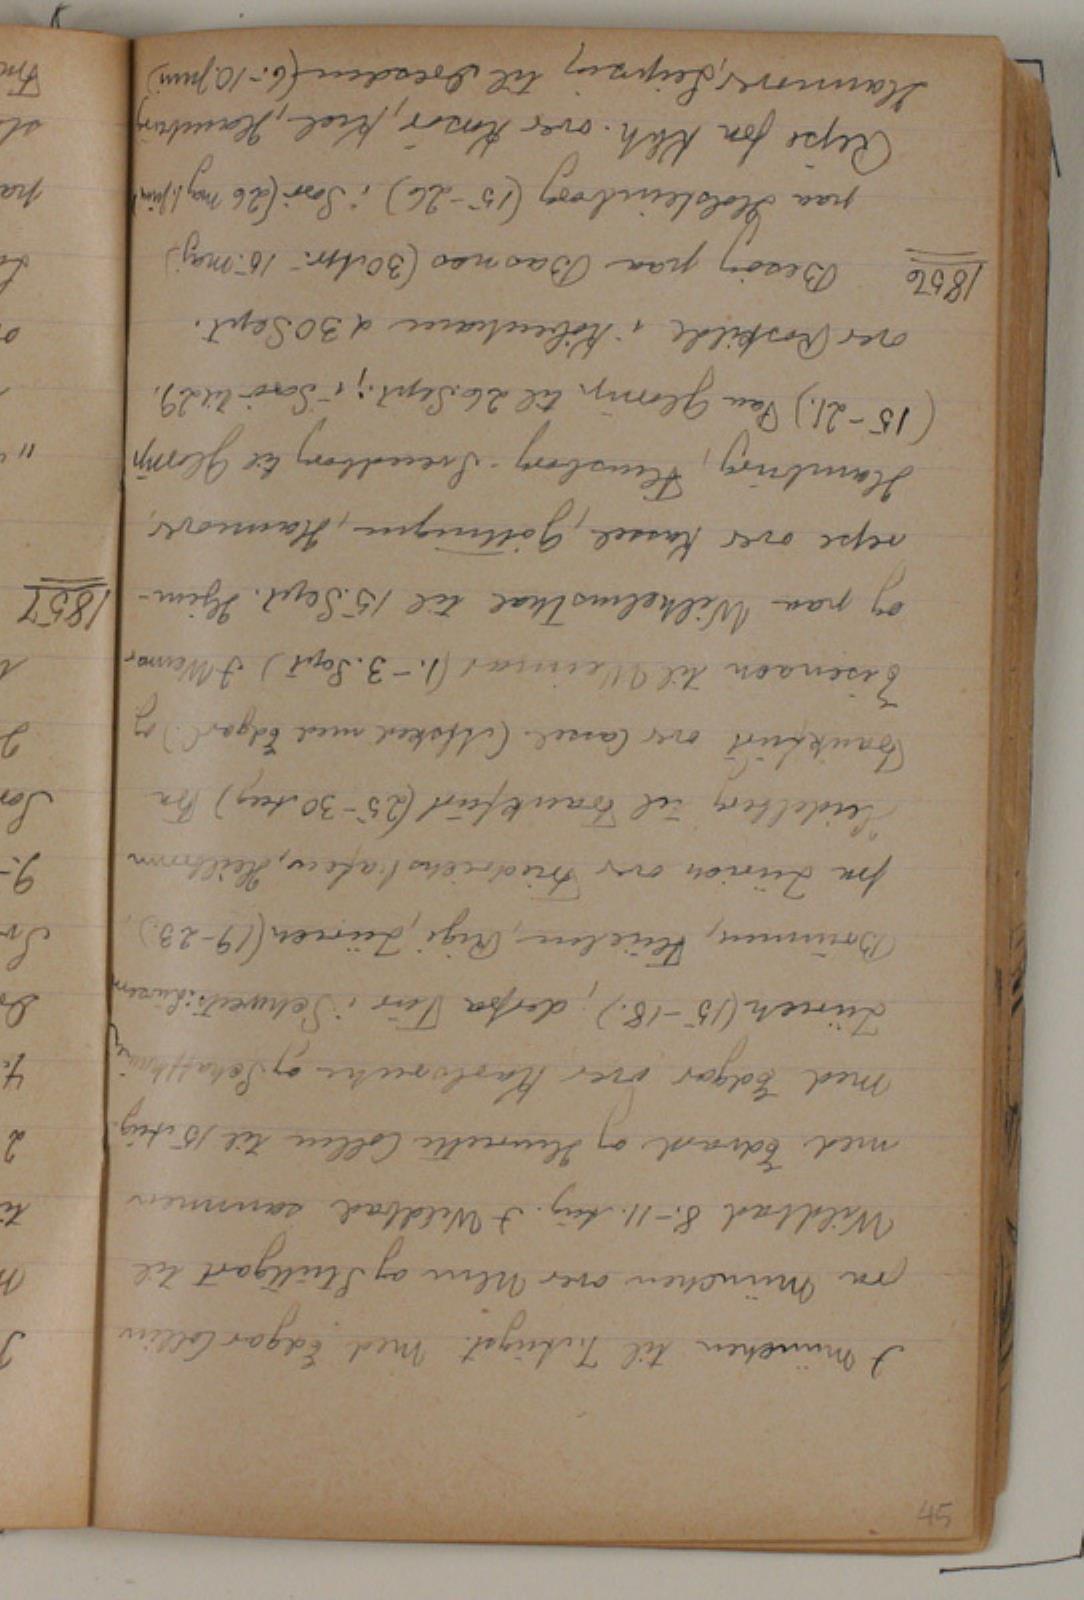 I München til 7. August. Med Edgar Collin
fra München over Ulm og Stuttgart til
Wildbad 8.-11. Aug. I Wildbad sammen
med Edvard og Henriette Collin til 15 Aug.
med Edgar over Karlsruhe og Schaffhausen
Zürich (15-18.); derfra Tur i Schweitz: Luzern
Brunnen, Flüelen, Rigi, Zürich (19-23.),
fra Zürich over Friedrichshafen, Heilbronn
Heidelberg til Frankfurt (25-30 Aug) Fra
Frankfurt over Cassel (Afsked med Edgar) og
Eisenach til Weimar (1.-3. Sept) I Weimar
og paa Wilhelmsthal til 15. Sept. Hjem-
rejse over Kassel, Göttingen, Hannover,
Hamburg, Flensborg - Svendborg til Glorup
(15-21.) Paa Glorup til 26. Sept.; i Sorö til 29.
over Roskilde i Köbenhavn d 30 Sept.
1856 Besög paa Basnæs (30 Apr. - 15. maj)
paa Holsteinborg (15-26) i Sorö (26 maj-1. juni)
Rejse fra Kbh. over Korsör, Kiel, Hamburg
Hannover, Leipzig til Dresden (6.-10. juni)
45
1857